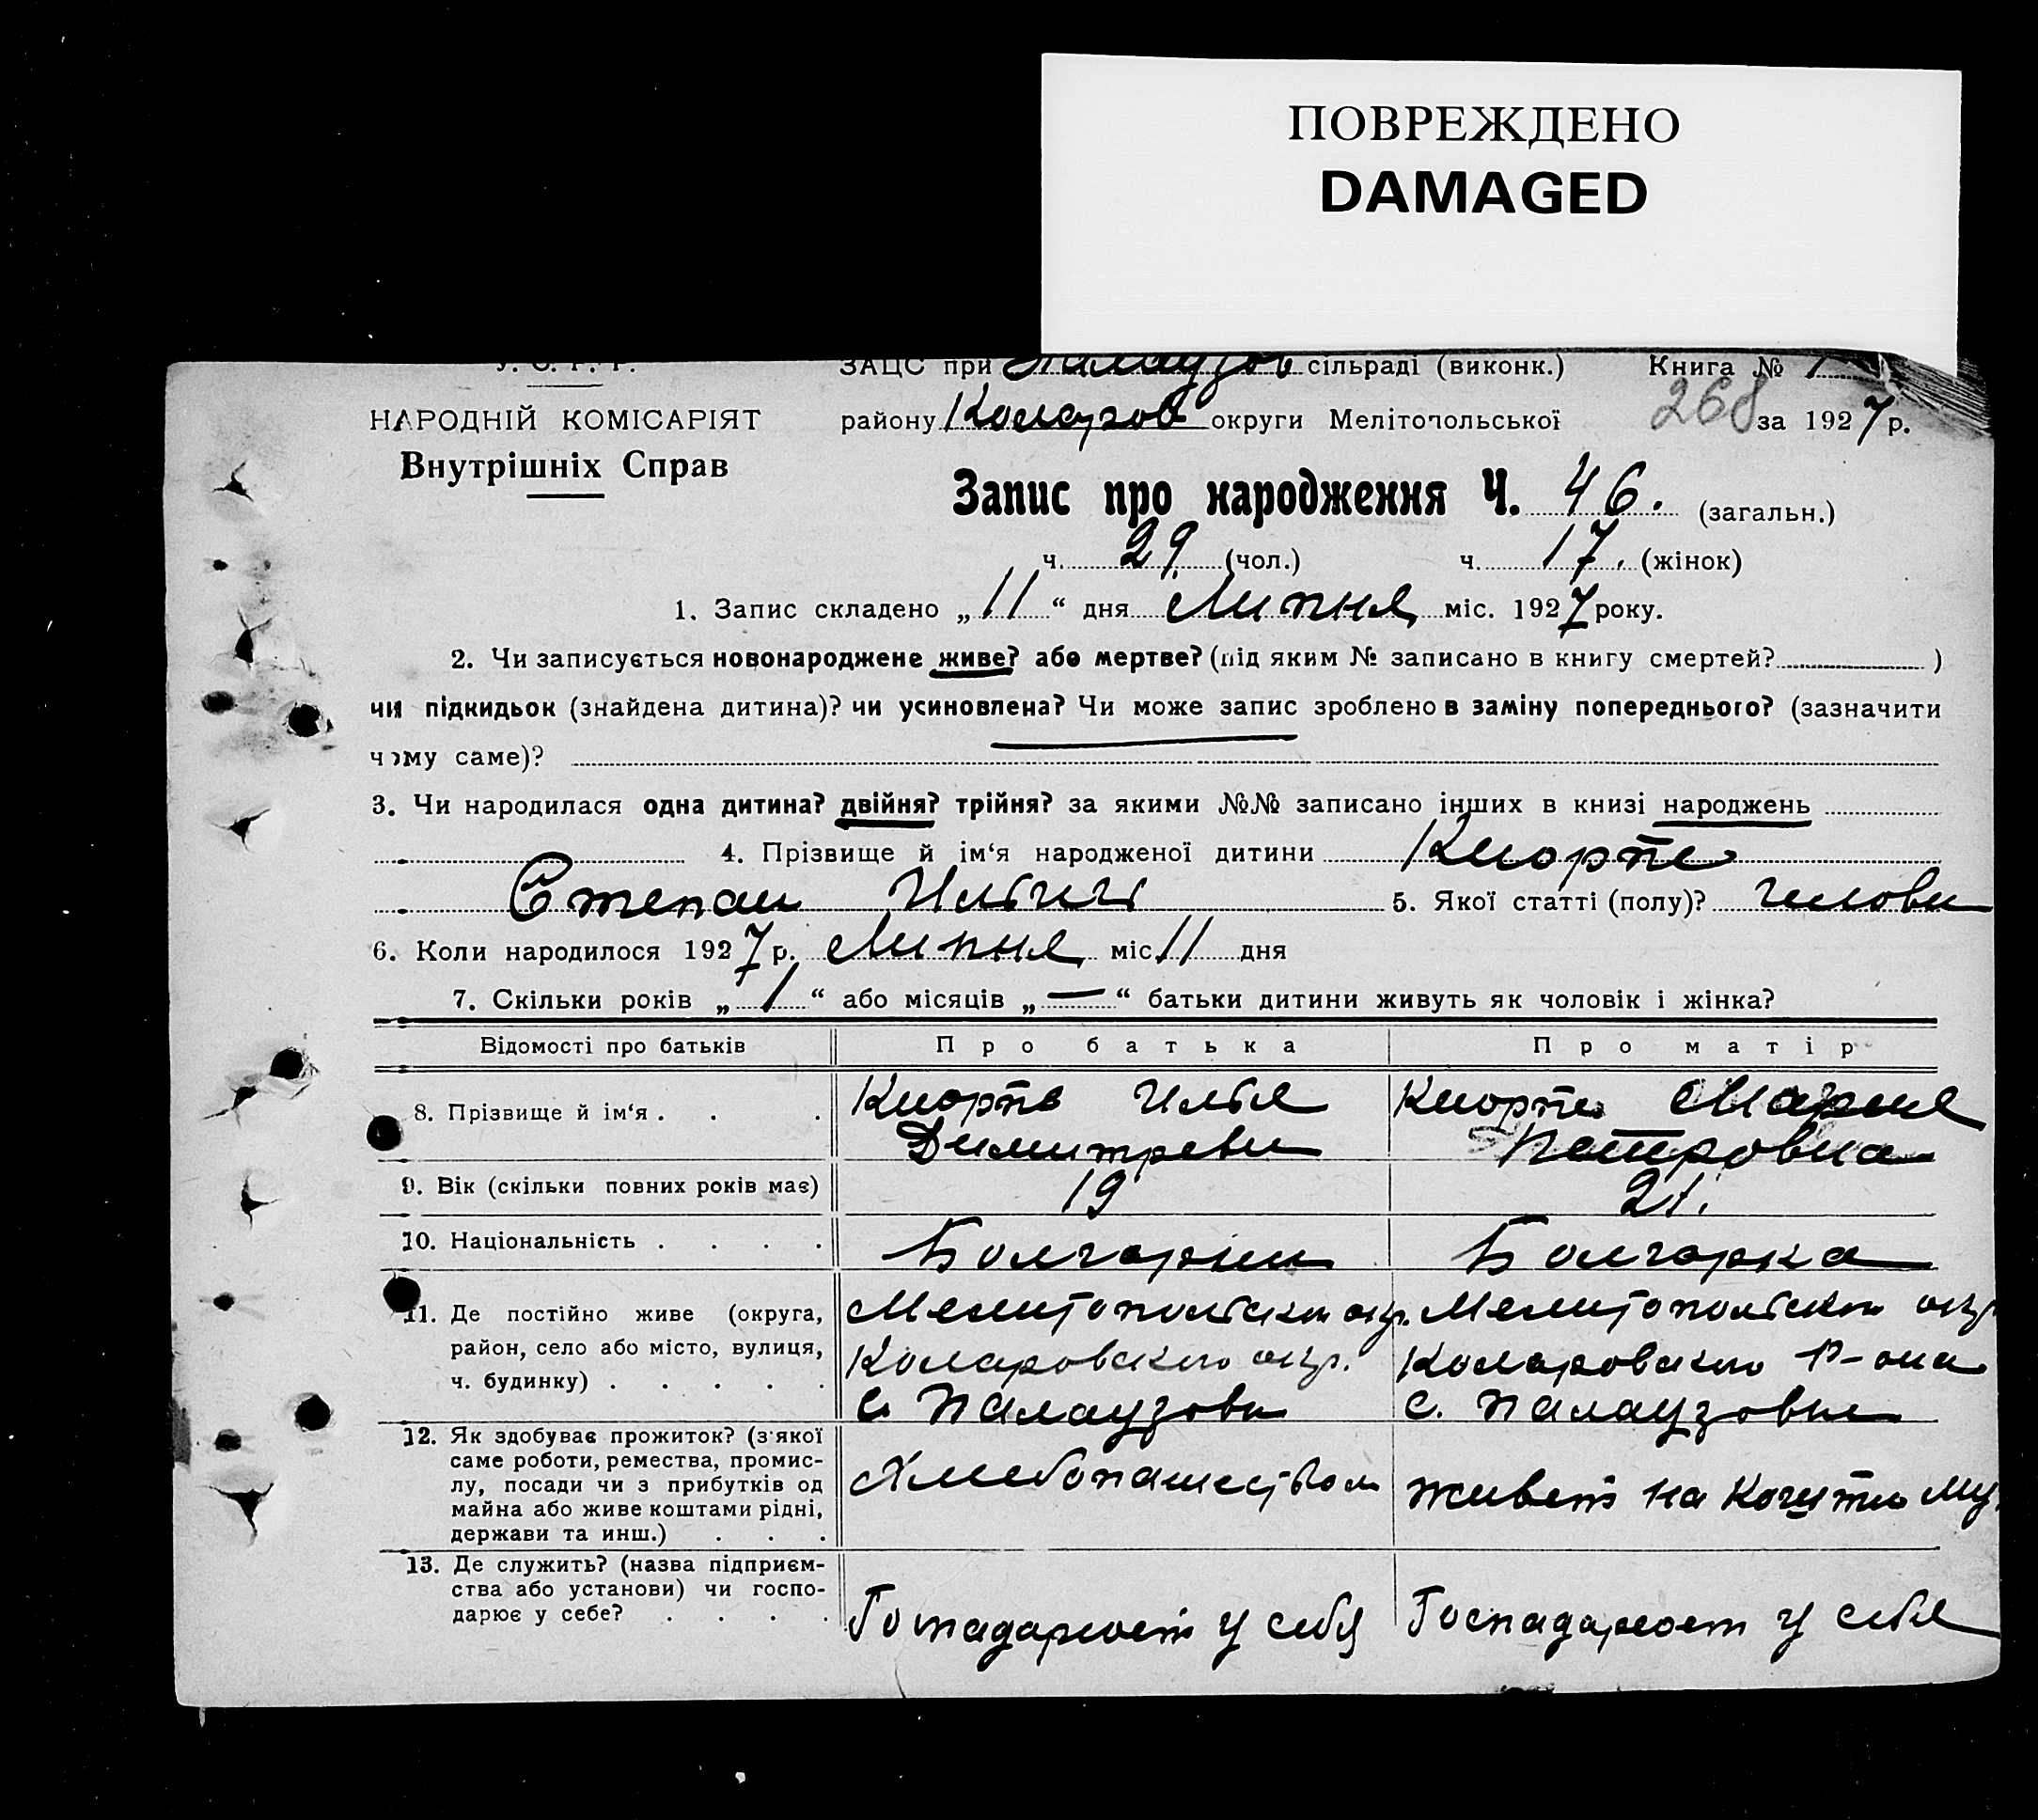 ПОВРЕЖДЕНО
DAMAGED
У. С. Р. Р.
ЗАЦС при Палаузов сільраді (виконк.) Книга № 1
НАРОДНІЙ КОМІСАРІЯТ
району Коларов округи Мелітопольської 268 за 1927 р.
Внутрішніх Справ
Запис про народження Ч. 46. (загальн.)
ч. 29 (чол.) ч. 17. (жінок)
1. Запис складено „11“ дня Липня міс. 1927 року.
2. Чи записується новонароджене живе? або мертве? (під яким № записано в книгу смертей? )
чи підкидьок (знайдена дитина)? чи усиновлена? Чи може запис зроблено в заміну попереднього? (зазначити
чому саме)?
3. Чи народилася одна дитина? двійня? трійня? за якими №№ записано інших в книзі народжень
4. Прізвище й ім‘я народженої дитини Кюорпе
Степан Ильич 5. Якої статті (полу)? чилови
6. Коли народилося 1927 р. Липня міс 11 дня
7. Скільки років „1“ або місяців „—“ батьки дитини живуть як чоловік і жінка?
Відомості про батьків Про батька Про матір
8. Прізвище й ім‘я . . . Илья Мария
Димитреви Петровна
9. Вік (скільки повних років має) 19 21.
10. Національність . . . . Болгарин Болгарка
11. Де постійно живе (округа, Мелитопольском окр. Мелитопольском окр
район, село або місто, вулиця, Коларовского окр. Коларовского р-она
ч. будинку) . . . . . с. Палаузовк с. Палаузовке
12. Як здобуває прожиток? (з'якої
саме роботи, ремества, промис-
лу, посади чи з прибутків од Хлебопашеством живет на кошти му
майна або живе коштами рідні,
держави та инш.) . . .
13. Де служить? (назва підприєм-
ства або установи) чи госпо-
дарює у себе? . . . . Госпадарюет у себя Госпадарюет у себя